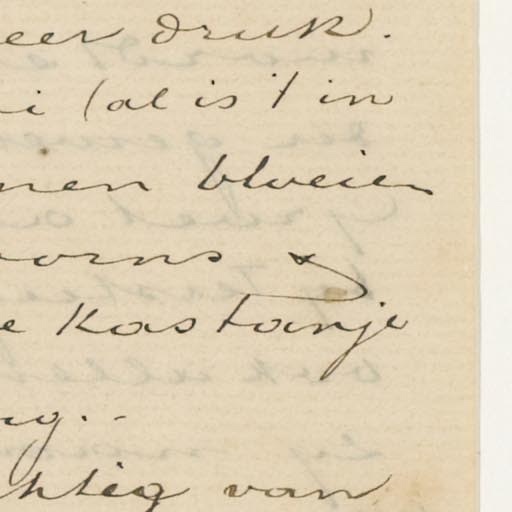 eer druk.
i (al is 't in
nen bloeien
oorns &
e Kastanje
ng..
htig van